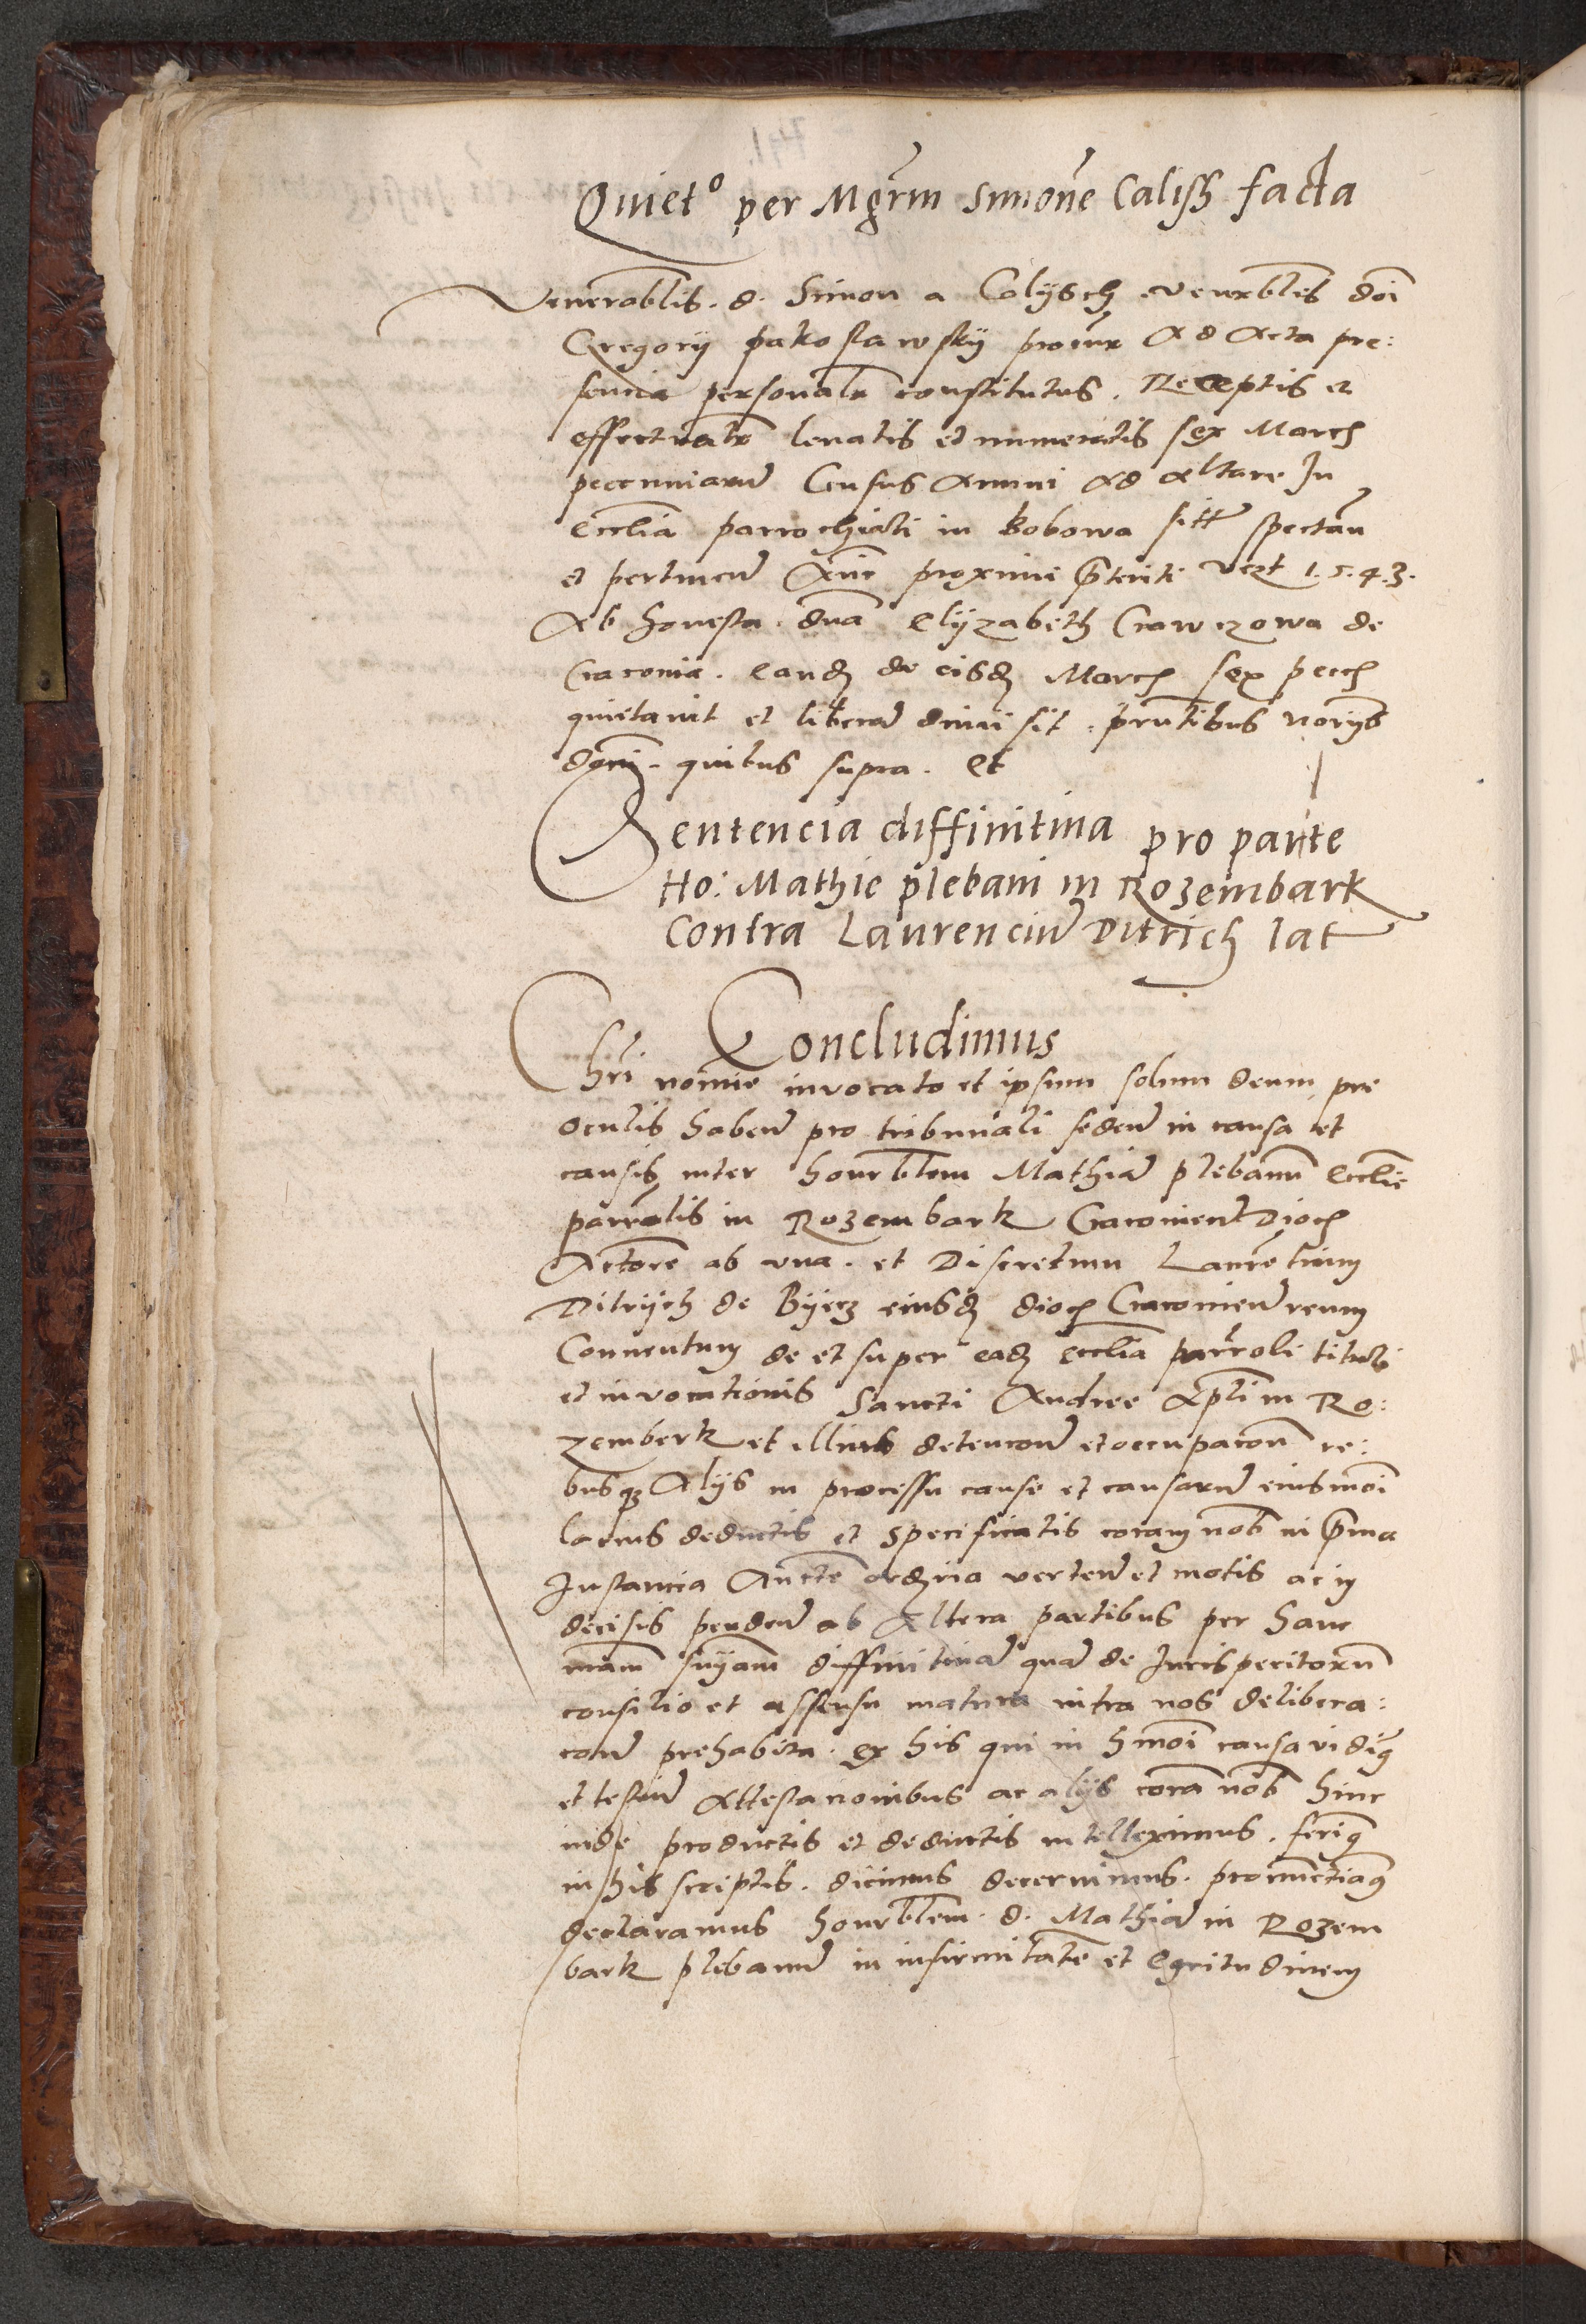 Quieto per Mgrm Simone Calissz facta
Venerablis . d . Simon a Calysch . venerbles doi
Gregorij pakoslawskij procur Ad Acta pre:
sencia personaltr constitutus . Receptis et
effectualtr levatis et numeratis sex March
pecuniaru Census Annui Ad Altare In
Ecclia parrochiali in Bobowa sitt spectan
et pertinen Anni proximi preteriti vczt 1.5.4.3.
Ab honesta . dna Elyzabeth Crawczowa de
Cracovia . eand de eisd March sex pecch
quietavit et liberu dimisit . prntibus noryis
dgni . quibus supra . Et
Sentencia diffinitiva pro parte
Ho: Mathie plebani in Rozembark
contra Laurenciu Ditrich lat
Concludimus
Chri nomie invocato et ipsum solum deum pre
oculis haben pro tribunali seden in causa et
causis inter honrblem Mathia plebanu Ecclie
parralis in Rozembark Cracovien Dioch
Actore ab una . et Discretum Laurentium
Ditrych de Byecz eiusd dioch Cracovien reum
Conventum de et super ead ecclia parroli tituli
et invocationis Sancti Andree Apli in Ro:
zemberk et illius detencon et occupacon re:
busq Alijs in processu cause et causaru eiusmoi
lacius deductis et specificatis coram nob in prima
Instancia Aucte ordria verten et motis ac in
decisis penden ab Altera partibus per hanc
nram snyam diffinitiva qua de Iurisperitoru
consilio et assensu matura intra nos delibera:
cone prehabita . ex his qui in hmoi causa vidimg
et testiu Attestacionibus ac alijs cora nob hinc
inde productis et deductis intelleximus . ferimg
in his scriptis . dicimus decernimus . pronunctiamg
declaramus honrblem . d . Mathia in Rozem
bark plebanu in infirmitate et Egritudinem